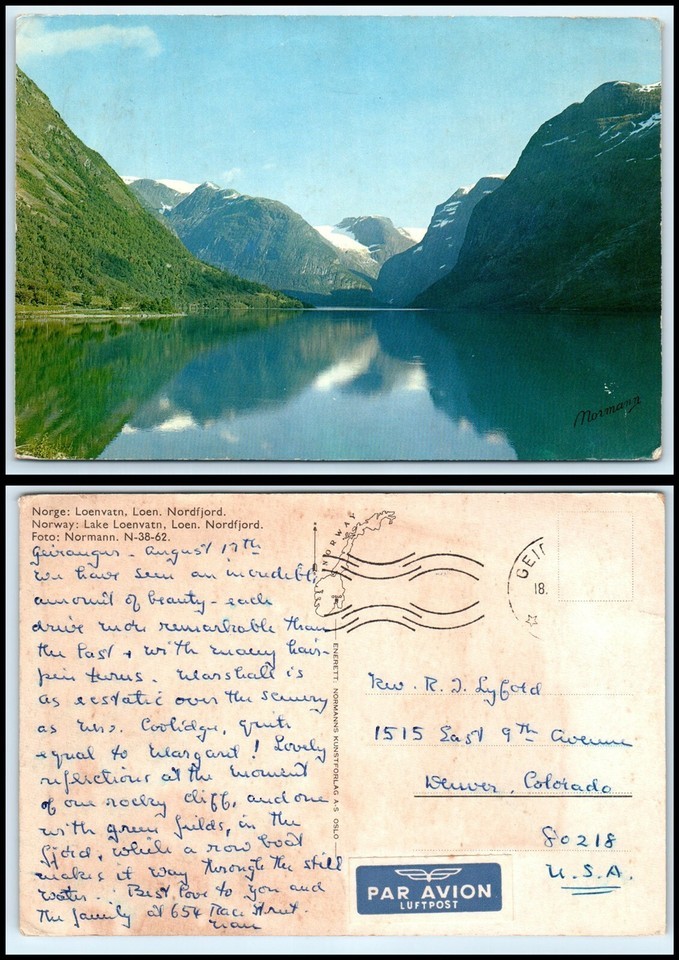 Normann
Norge: Loenvatn, Loen. Nordfjord.
Norway: Lake Loenvatn, Loen. Nordfjord.
Foto: Normann. N-38-62.
Geiranger - August 17th
We have seen an incredible
amount of beauty - each
drive more remarkable than
the last + with many hair-
pin turns. Marshall is
as ecstatic over the scenery
as Mrs. Coolidge, quite
equal to Margard! Lovely
reflections at the moment
of one rocky cliff, and one
with green fields, in the
fjord, while a row boat
makes it way through the still
water. Best love to you and
the family at 654 Race Street.
NORWAY
ENERETT: NORMANNS KUNSTFORLAG A·S OSLO
GEIR
18.
Rev. R. J. Lyford
1515 East 9th Avenue
Denver, Colorado
80218
U.S.A.
PAR AVION
LUFTPOST